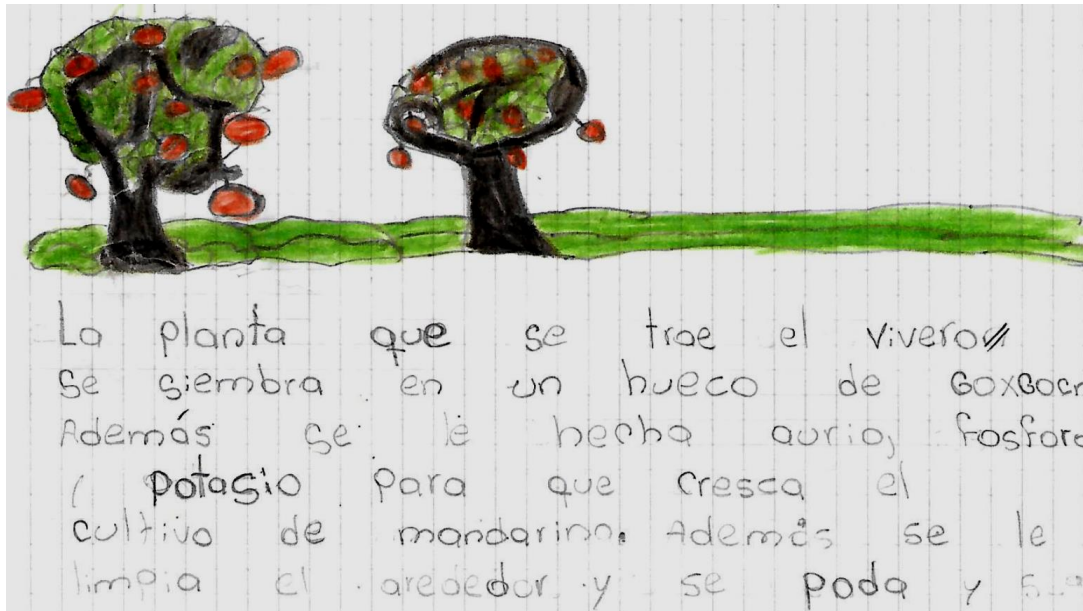 La planta que se trae el vivero
se siembra en un hueco de 60x60cm
Además se le hecha aurio, fosforo
potasio para que cresca el
cultivo de mandarino. Además se le
limpia el arededor y se poda y